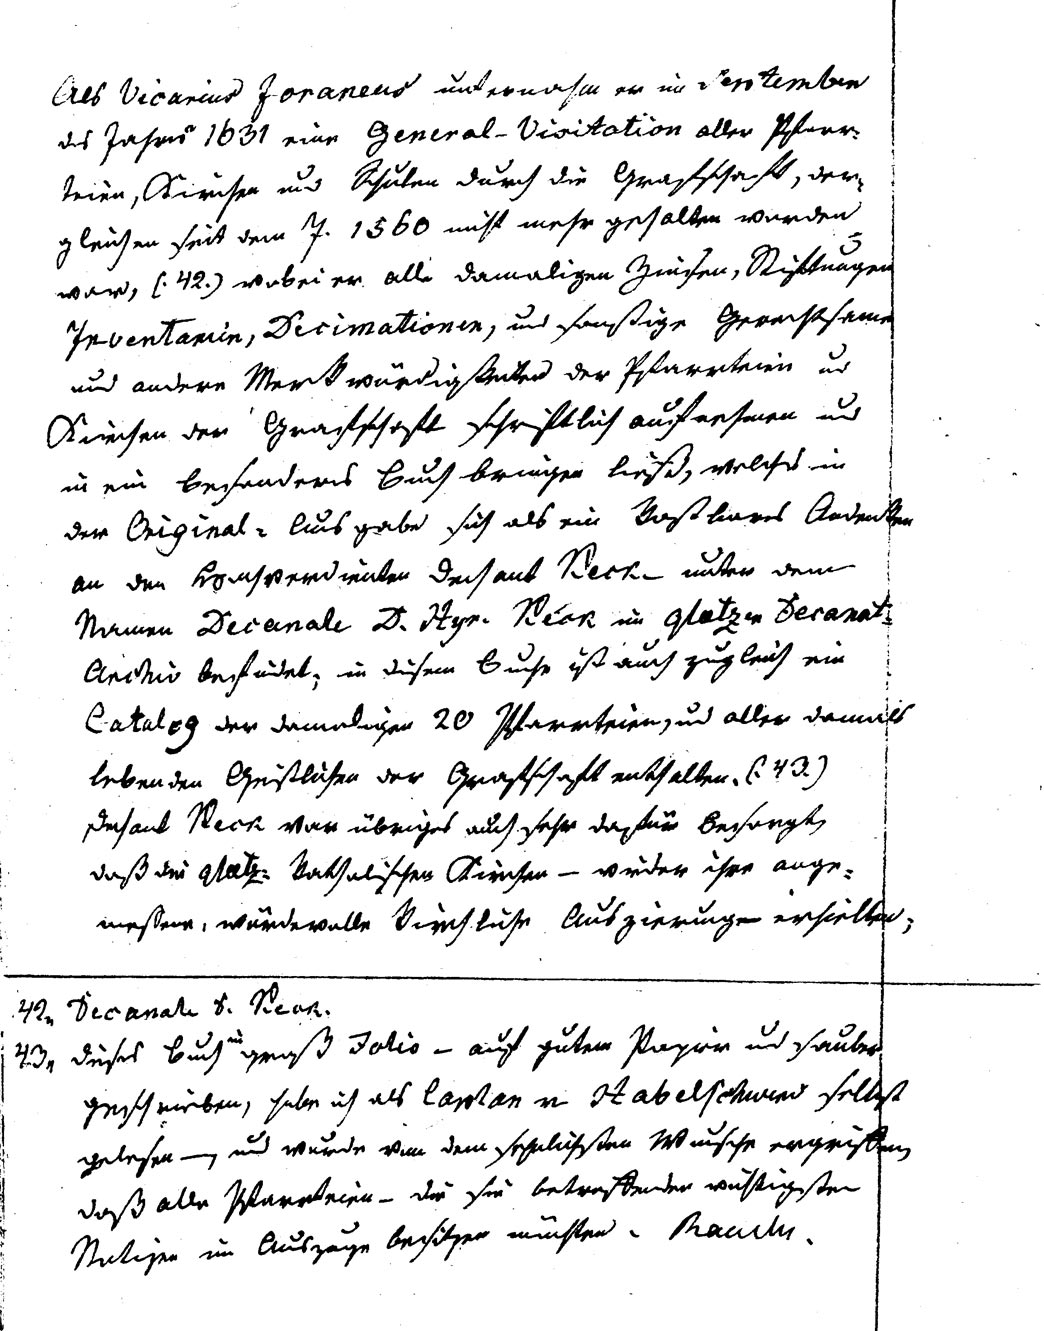 Als Vicarius foraneus unternahm er im September
des Jahres 1631 eine General-Visitation aller Pfarr-
teien, Kirchen und Schulen durch die Grafschaft, der-
gleichen seit dem J. 1560 nicht mehr gehalten worden
war, (:42.) wobei er alle damaligen Zinsen, Stiftungen
Inventarien, Decimationen, und sonstige Gerechtsame
und andere Merkwürdigkeiten der Pfarrteien und
Kirchen der Grafschaft schriftlich aufnehmen und
in ein besonderes Buch bringen ließ, welches in
der Original-Ausgabe sich als ein kostbares Andenken
an den hochverdienten Dechant Keck – unter dem
Namen Decanale D. Hyr. Keck im glatzer Decanat-
Archiv befindet; in diesem Buche ist auch zugleich ein
Catalog der damaligen 20 Pfarrteien, und aller damals
lebenden Geistlichen der Grafschaft enthalten. (:43.)
Dechant Keck war übriges auch sehr dafür besorgt,
daß die glatz. katholischen Kirchen – wieder ihre ange-
messene, würdevolle kirchliche Auszierungen erhielten;
42., Decanale D. Keck.
43., dieses Buch in groß Folio – auf gutem Papier und sauber
geschrieben, habe ich als Caplan in Habelschwerd selbst
gelesen –, und wurde von dem sehnlichsten Wunsche ergriffen,
daß alle Pfarrteien – die sie betreffenden wichtigsten
Notizen im Auszuge besitzen möchten.